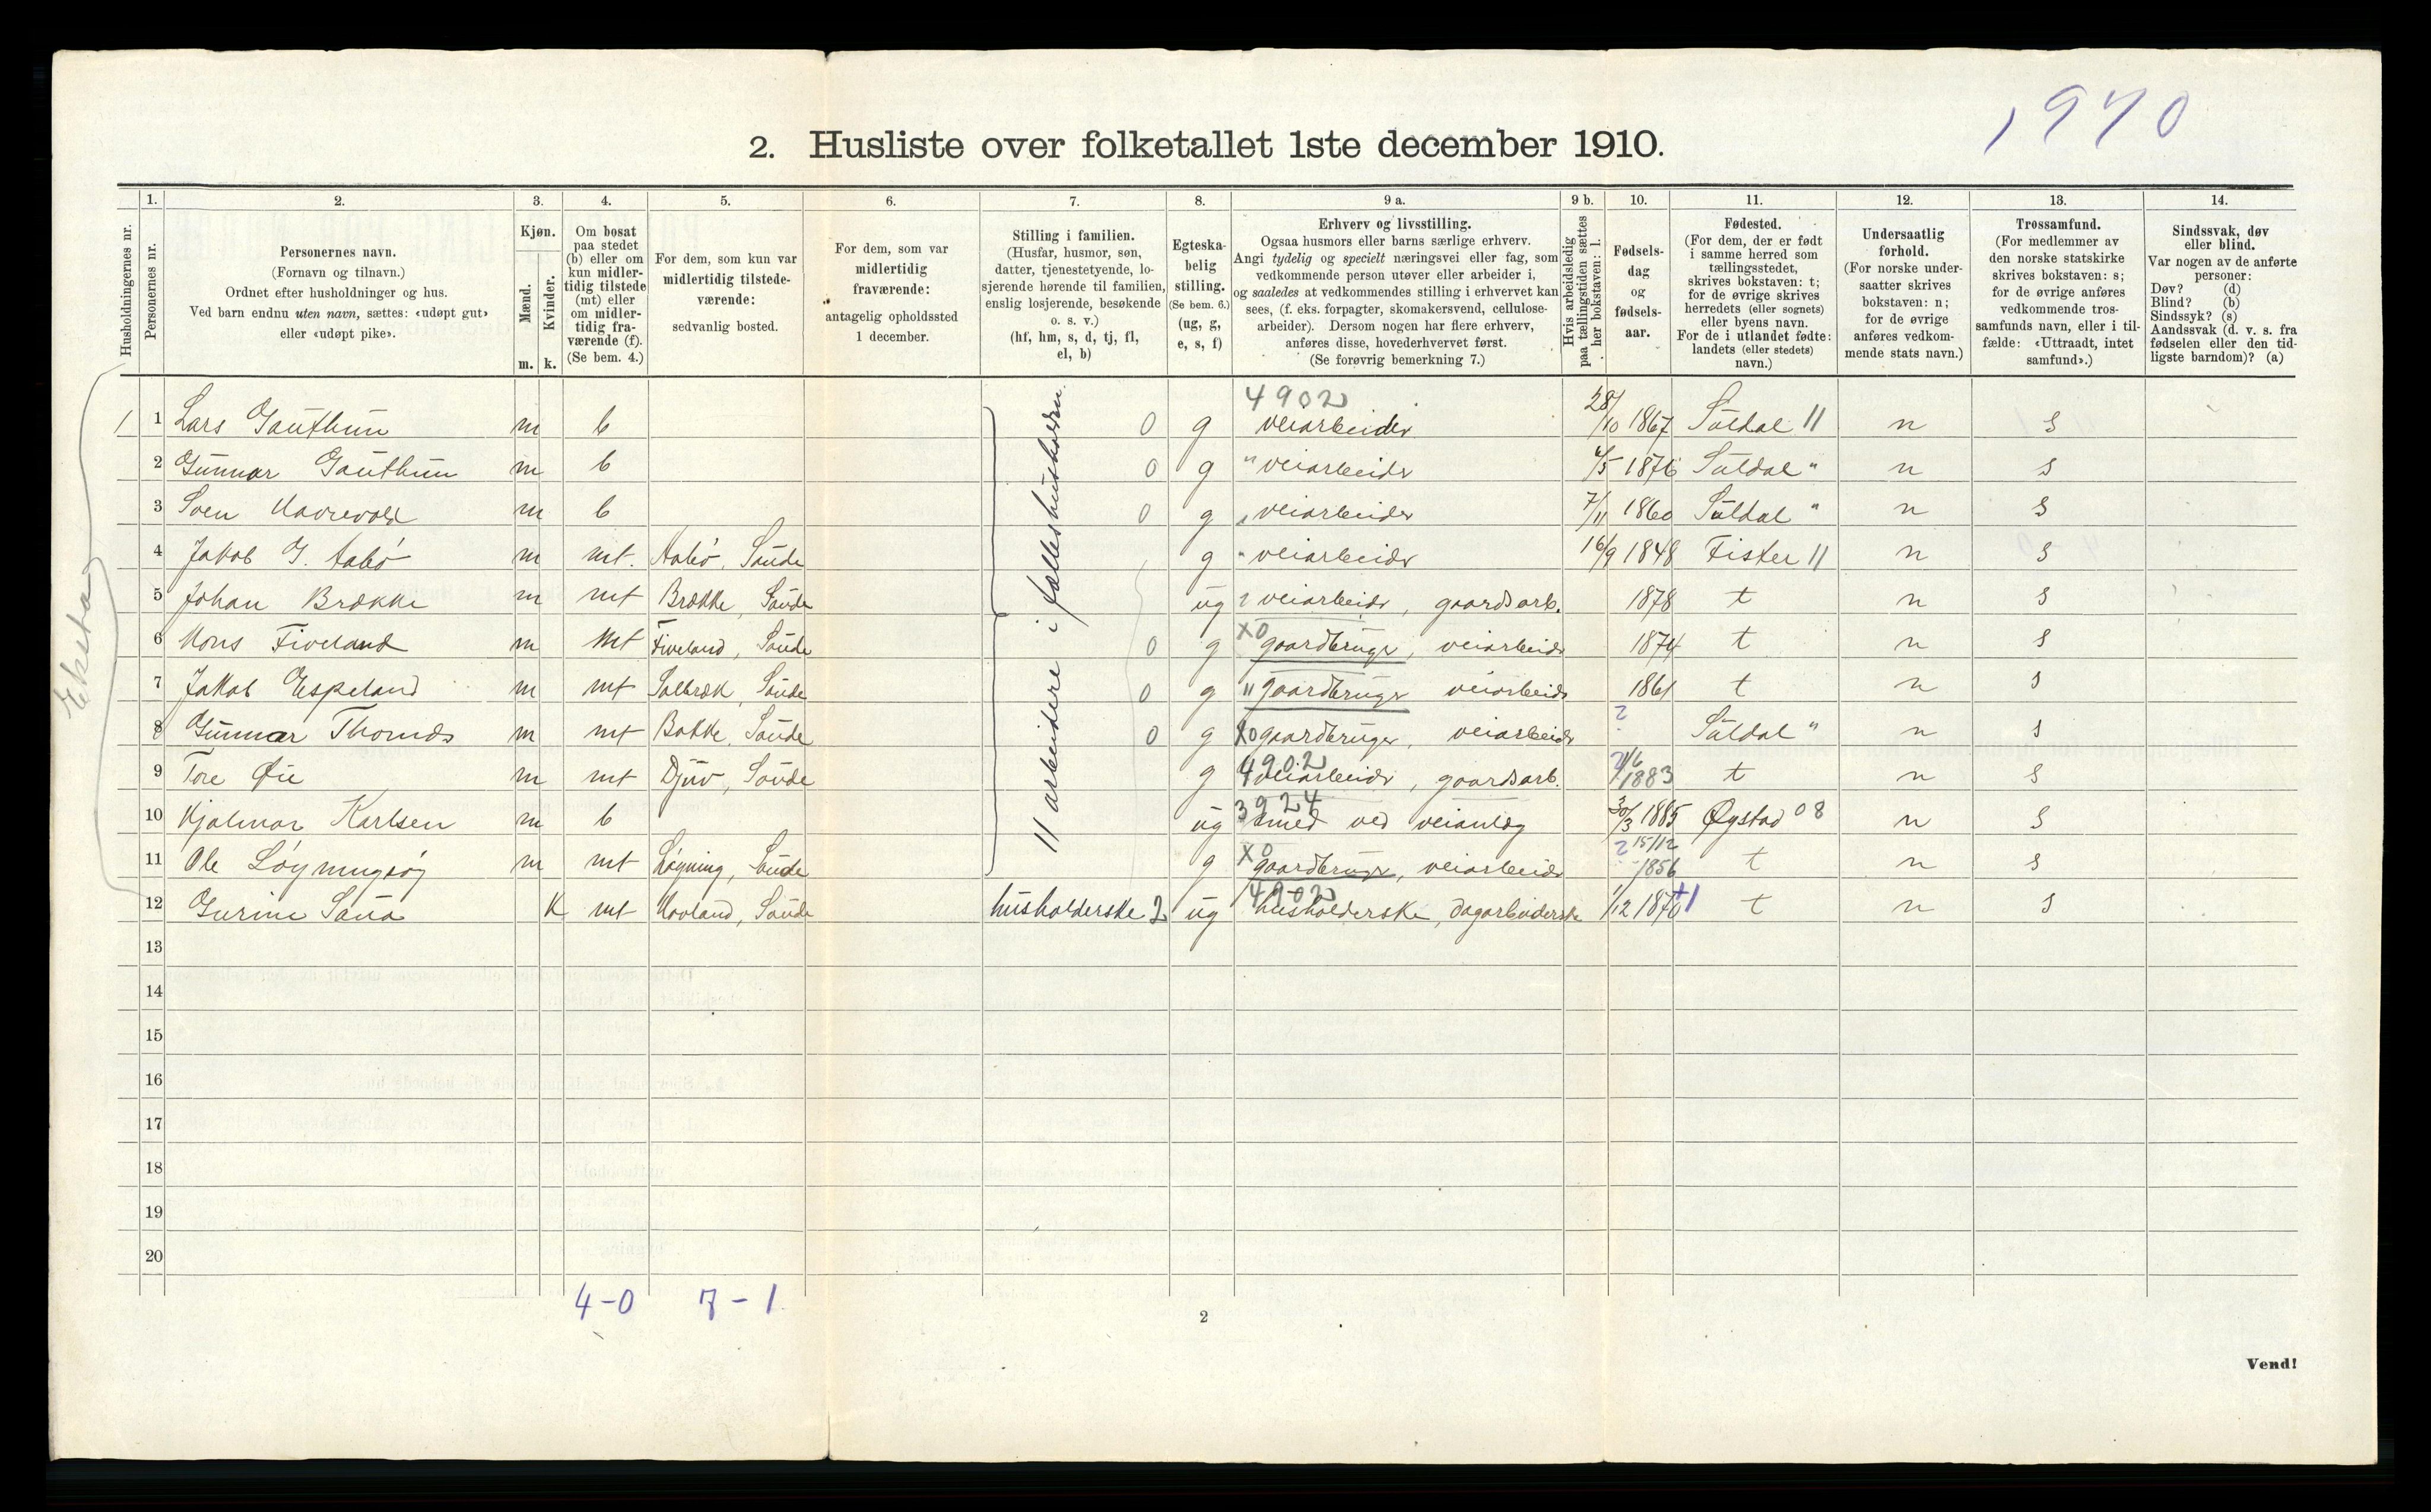 1940
2. Husliste over folketallet 1ste december 1910.
Husholdningernes nr.
1. Personernes nr.
2. Personernes navn.
(Fornavn og tilnavn.)
Ordnet efter husholdninger og hus.
Ved barn endnu uten navn, sættes: «udøpt gut»
eller «udøpt pike».
3. Kjøn.
Mænd. m.
Kvinder. k.
4. Om bosat
paa stedet
(b) eller om
kun midler-
tidig tilstede
(mt) eller
om midler-
tidig fra-
værende (f).
(Se bem. 4.)
5. For dem, som kun var
midlertidig tilstede-
værende:
sedvanlig bosted.
6. For dem, som var
midlertidig
fraværende:
antagelig opholdssted
1 december.
7. Stilling i familien.
(Husfar, husmor, søn,
datter, tjenestetyende, lo-
sjerende hørende til familien,
enslig losjerende, besøkende
o. s. v.)
(hf, hm, s, d, tj, fl,
el, b)
8. Egteska-
belig
stilling.
(Se bem. 6.)
(ug, g,
e, s, f)
9 a. Erhverv og livsstilling.
Ogsaa husmors eller barns særlige erhverv.
Angi tydelig og specielt næringsvei eller fag, som
vedkommende person utøver eller arbeider i,
og saaledes at vedkommendes stilling i erhvervet kan
sees, (f. eks. forpagter, skomakersvend, cellulose-
arbeider). Dersom nogen har flere erhverv,
anføres disse, hovederhvervet først.
(Se forøvrig bemerkning 7.)
9 b. Hvis arbeidsledig
paa tællingstiden sættes
her bokstaven: l.
10. Fødsels-
dag
og
fødsels-
aar.
11. Fødested.
(For dem, der er født
i samme herred som
tællingsstedet,
skrives bokstaven: t;
for de øvrige skrives
herredets (eller sognets)
eller byens navn.
For de i utlandet fødte:
landets (eller stedets)
navn.)
12. Undersaatlig
forhold.
(For norske under-
saatter skrives
bokstaven: n;
for de øvrige
anføres vedkom-
mende stats navn.)
13. Trossamfund.
(For medlemmer av
den norske statskirke
skrives bokstaven: s;
for de øvrige anføres
vedkommende tros-
samfunds navn, eller i til-
fælde: «Uttraadt, intet
samfund».)
14. Sindssvak, døv
eller blind.
Var nogen av de anførte
personer:
Døv? (d)
Blind? (b)
Sindssyk? (s)
Aandssvak (d. v. s. fra
fødselen eller den tid-
ligste barndom)? (a)
11 arbeidere i fælleshusholdn.
4902
1 1 Lars Gauthun m b 0 g veiarbeider 28/10 1867 Suldal 11 n s
2 Gunnar Gauthun m b 0 g " veiarbeider 4/5 1876 Suldal " n s
3 Sven Havrevold m b 0 g veiarbeider 7/11 1860 Suldal " n s
4 Jakob G. Aabø m mt. Aabø, Saude g " veiarbeider 16/9 1848 Fister 11 n s
5 Johan Brække m mt Brække, Saude ug veiarbeider, gaardsarb. 1878 t n s
6 Mons Fiveland m mt Fiveland, Saude 0 g X0 gaardbruger, veiarbeider 1874 t n s
7 Jakob Espeland m mt Solbrek, Saude 0 g " gaardbruger veiarbeider 1861 t n s
8 Gunnar Thornds m mt Bakke, Saude 0 g X0 gaardbruger, veiarbeider ? Suldal " n s
9 Tore Øie m mt Djuv, Saude g 4902 veiarbeider, gaardsarb. /6 1883 t n s
10 Hjalmar Karlsen m b ug 3924 smed ved veianlæg 30/3 1885 Øystad 08 n s
11 Ole Løyningsøy m mt Løyning, Saude g X0 gaardbruger, veiarbeider ? 15/12 1856 t n s
12 Gurine Saua K mt Hovland, Saude husholderske 2 ug 4902 husholderske, dagarbeiderske 1/12 1870 +1 t n s
13
14
15
16
17
18
19
20
4-0 7-1
2
Vend!